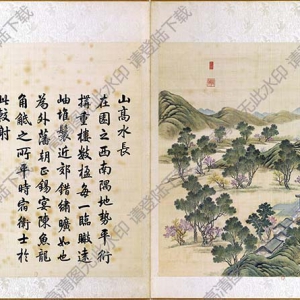 山高水長
在園之西南隅地勢平衍
搆重樓數楹每一臨瞰遠
岫堆鬟近郊錯繡曠如也
為外藩朝正錫宴陳魚龍
角觝之所平時宿衛士於
此較射
高清图无此水印 请登陆下载